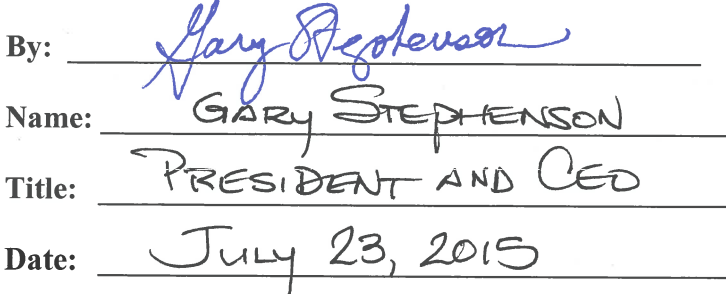 By: Gary Stephenson
Name: GARY STEPHENSON
Title: PRESIDENT AND CEO
Date: JULY 23, 2015